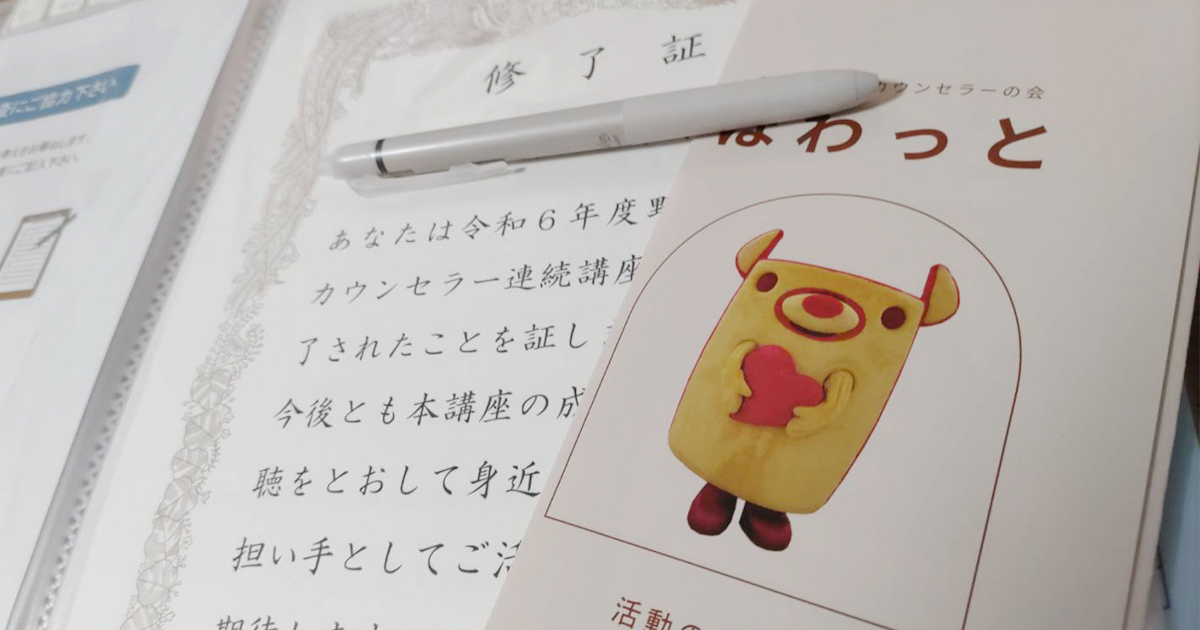 査にご協力下さい
修了証
あなたは令和6年度野
カウンセラー連続講座
了されたことを証し
今後とも本講座の成
聴をとおして身近
担い手としてご活
期待します
カウンセラーの会
ほわっと
活動の